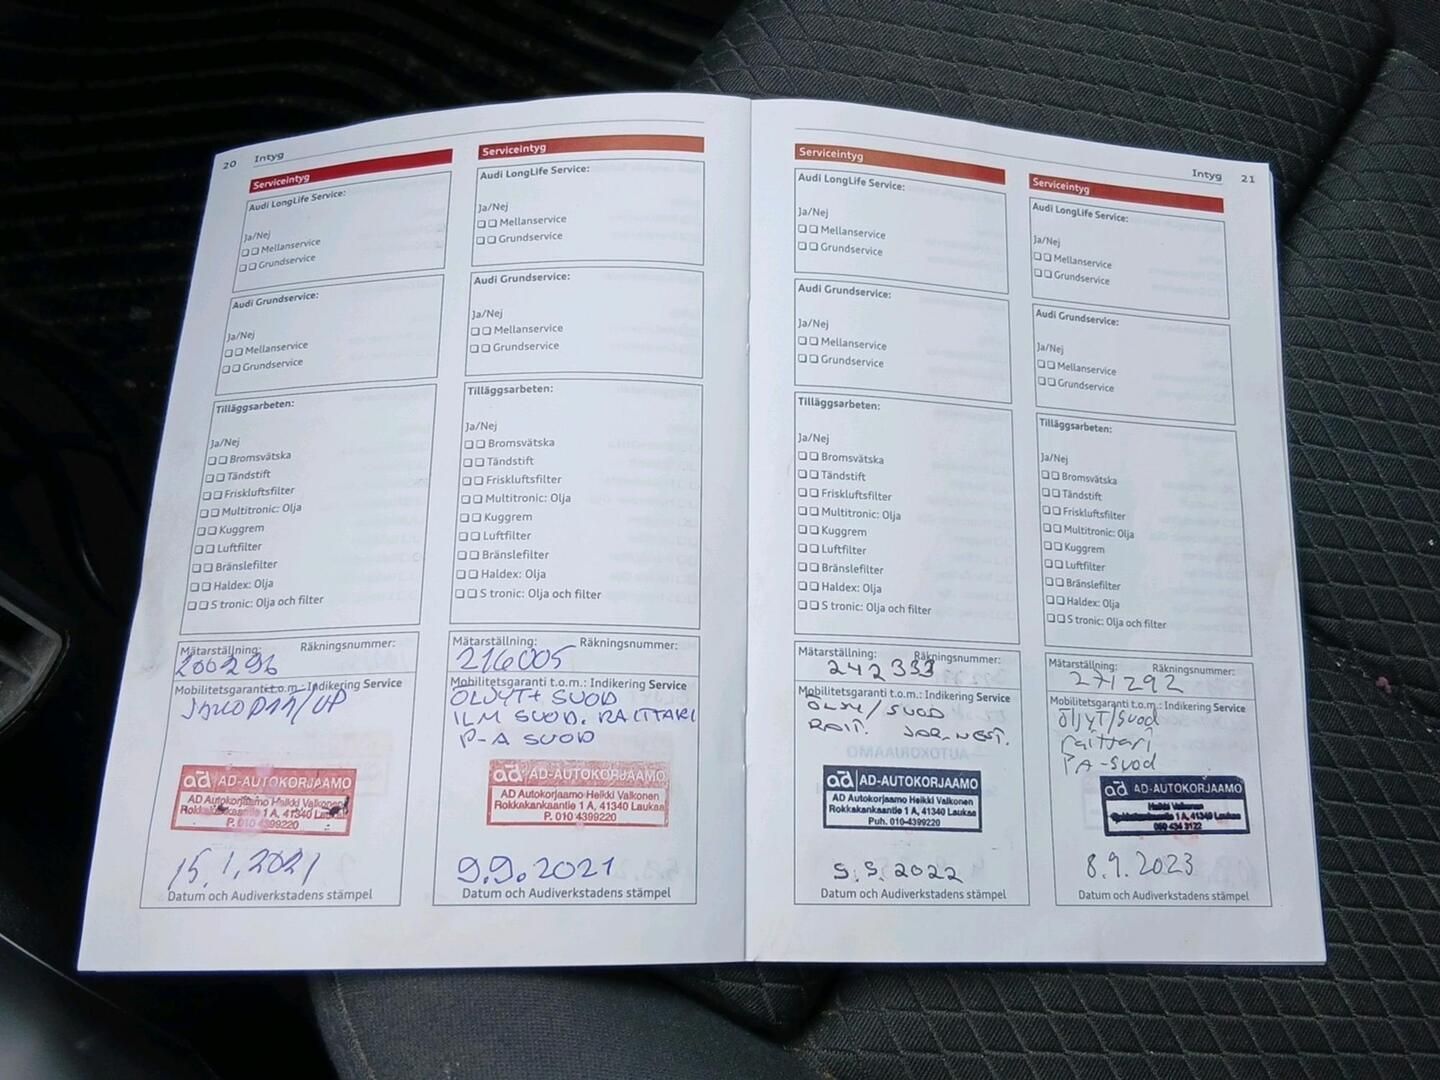 20 Intyg
Serviceintyg
Audi LongLife Service:
Ja/Nej
Mellanservice
Grundservice
Audi Grundservice:
Ja/Nej
Mellanservice
Grundservice
Tilläggsarbeten:
Ja/Nej
Bromsvätska
Tändstift
Friskluftsfilter
Multitronic: Olja
Kuggrem
Luftfilter
Bränslefilter
Haldex: Olja
S tronic: Olja och filter
Mätarställning: Räkningsnummer:
200296
Mobilitetsgaranti t.o.m.: Indikering Service
ad AD-AUTOKORJAAMO
AD Autokorjaamo Heikki Valkonen
Rokkakankaantie 1 A, 41340 Laukaa
P. 010 4399220
15.1.2021
Datum och Audiverkstadens stämpel
Serviceintyg
Audi LongLife Service:
Ja/Nej
Mellanservice
Grundservice
Audi Grundservice:
Ja/Nej
Mellanservice
Grundservice
Tilläggsarbeten:
Ja/Nej
Bromsvätska
Tändstift
Friskluftsfilter
Multitronic: Olja
Kuggrem
Luftfilter
Bränslefilter
Haldex: Olja
S tronic: Olja och filter
Mätarställning: Räkningsnummer:
216005
Mobilitetsgaranti t.o.m.: Indikering Service
ÖLJYT+ SUOD
ILM SUOD. RAITTARI
P-A SUOD
ad AD-AUTOKORJAAMO
AD Autokorjaamo Heikki Valkonen
Rokkakankaantie 1 A, 41340 Laukaa
P. 010 4399220
9.9.2021
Datum och Audiverkstadens stämpel
Serviceintyg
Audi LongLife Service:
Ja/Nej
Mellanservice
Grundservice
Audi Grundservice:
Ja/Nej
Mellanservice
Grundservice
Tilläggsarbeten:
Ja/Nej
Bromsvätska
Tändstift
Friskluftsfilter
Multitronic: Olja
Kuggrem
Luftfilter
Bränslefilter
Haldex: Olja
S tronic: Olja och filter
Mätarställning: Räkningsnummer:
242333
Mobilitetsgaranti t.o.m.: Indikering Service
SUOD
RAIT. JAR.NEST.
ad AD-AUTOKORJAAMO
AD Autokorjaamo Heikki Valkonen
Rokkakankaantie 1 A, 41340 Laukaa
Puh. 010-4399220
5.5.2022
Datum och Audiverkstadens stämpel
Intyg 21
Serviceintyg
Audi LongLife Service:
Ja/Nej
Mellanservice
Grundservice
Audi Grundservice:
Ja/Nej
Mellanservice
Grundservice
Tilläggsarbeten:
Ja/Nej
Bromsvätska
Tändstift
Friskluftsfilter
Multitronic: Olja
Kuggrem
Luftfilter
Bränslefilter
Haldex: Olja
S tronic: Olja och filter
Mätarställning: Räkningsnummer:
271292
Mobilitetsgaranti t.o.m.: Indikering Service
öljyT/suod
raittari
PA-suod
ad AD-AUTOKORJAAMO
Heikki Valkonen
Rokkakankaantie 1 A, 41340 Laukaa
050 434 3122
8.9.2023
Datum och Audiverkstadens stämpel